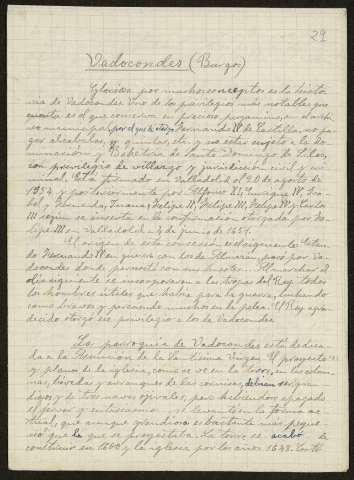 29
Vadocondes (Burgos)
Gloriosa por muchos conceptos es la histo
ria de Vadocondes. Uno de los privilegios más notables que
cuenta es el que conserva en precioso pergamino, en el archi
vo municipal, por el que le otorga Fernando IV de Castilla, no pa
gar alcabalas, quintas, etc. y no estar sujeto a la do
minación y Behetría de Santo Domingo de Silos,
con privilegio de villazgo y jurisdicción civil y cri
minal. Está firmado en Valladolid el 20 de agosto de
y posteriormente por Alfonso XI, Enrique IV, Isa
bel y Fernando, Juana, Felipe II, Felipe III, Felipe IV y Carlos
II según se inserta en la confirmación otorgada por Fe
lipe IV en Valladolid a 4 de junio de
El origen de esta concesión es el siguiente: Estan
do Fernando IV en guerra con los de Almazán, pasó por Va
docondes donde pernoctó con sus huestes. Al marchar al
día siguiente se incorporaron a las tropas del Rey todos
los hombres útiles que había para la guerra, luchando
como bravos y pereciendo muchos en la pelea. El Rey agra
decido otorgó ese privilegio a los de Vadocondes.
La parroquia de Vadocondes está dedica
da a la Asunción de la Santísima Virgen. El proyecto
y planos de la iglesia, como se ve en la torre, en las colum
nas, bóvedas y arranques de las cornisas, debían ser gran
diosos y de tres naves ojivales, pero habiéndose apagado
el fervor y entusiasmo, se levantó en la forma ac
tual, que aunque grandiosa es bastante más peque
ña que la que se proyectaba. La torre se acabó de
construir en 1600 y la iglesia por los años 1648.